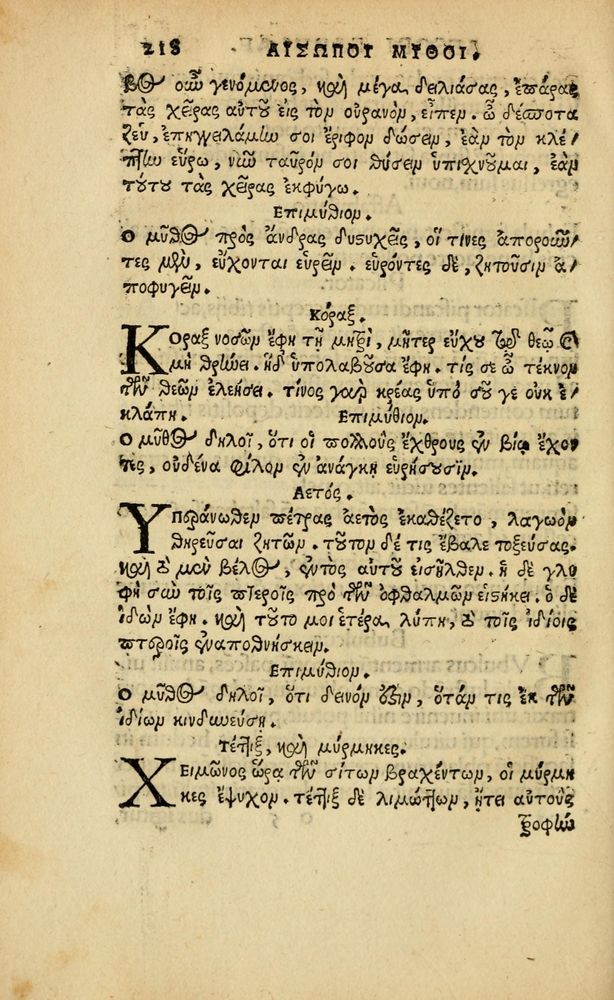 218 ΑΙΣΩΠΟΥ ΜΥΘΟΙ.
βος οὖν γενόμενος, καὶ μέγα δειλιάσας, ἐπάρας
τὰς χεῖρας αὐτοῦ εἰς τὸν οὐρανὸν, εἶπεν. ὦ δέσποτα
ζεῦ, ἐπηγγειλάμην σοι ἔριφον δώσειν, ἐὰν τὸν κλέ/
πτην εὕρω, νῦν ταῦρόν σοι θύσειν ὑπισχνοῦμαι, ἐὰν
τούτου τὰς χεῖρας ἐκφύγω.
Επιμύθιον.
Ο μῦθος πρὸς ἄνδρας δυςυχεῖς, οἵ τινες ἀποροῦν/
τες μὲν, εὔχονται εὑρεῖν. εὑρόντες δὲ, ζητοῦσιν ἀ/
ποφυγεῖν.
Κόραξ.
Κοραξ νοσῶν ἔφη τῇ μητρὶ, μῆτερ εὔχου τῷ θεῷ καὶ
μὴ θρήνει. ἡ δ' ὑπολαβοῦσα ἔφη. τίς σε ὦ τέκνον
τῶν θεῶν ἐλεήσει. τίνος γὰρ κρέας ὑπὸ σοῦ γε οὐκ ἐ/
κλάπη. Επιμύθιον.
Ο μῦθος δηλοῖ, ὅτι οἱ πολλοὺς ἔχθρους ἐν βίῳ ἔχον
τες, οὐδένα φίλον ἐν ἀνάγκῃ εὑρήσουσιν.
Αετός.
Υπεράνωθεν πέτρας αετὸς ἐκαθέζετο, λαγωὸν
θηρεῦσαι ζητῶν. τοῦτον δέ τις ἔβαλε τοξεύσας.
καὶ τὸ μὲν βέλος, ἐντὸς αὐτοῦ εἰσῆλθεν. ἡ δὲ γλυ
φὴ σὺν τοῖς πτεροῖς πρὸ τῶν ὀφθαλμῶν εἱςήκει. ὁ δὲ
ἰδὼν ἔφη. καὶ τοῦτό μοι ἑτέρα λύπη, τὸ τοῖς ἰδίοις
πτεροῖς ἐναποθνήσκειν.
Επιμύθιον.
Ο μῦθος δηλοῖ, ὅτι δεινόν ἐςιν, ὅτάν τις ἐκ τῶν
ἰδίων κινδυνεύσῃ.
Τέττιξ, καὶ μύρμηκες.
Χειμῶνος ὥρᾳ τῶν σίτων βραχέντων, οἱ μύρμη
κες ἔψυχον. τέττιξ δὲ λιμώττων, ᾔτει αὐτοὺς
τροφὴν